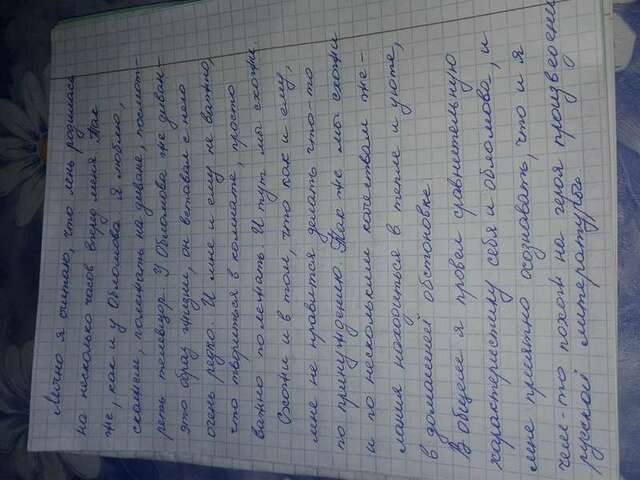 Лично я считаю, что лень родилась
на несколько часов вперед меня. Так
же, как и у Обломова. Я люблю,
скажем, полежать на диване, посмот-
реть телевизор. У Обломова же диван-
это образ жизни, он вставал с него
очень редко. И мне и ему не важно,
что твориться в комнате, просто
важно полежать. И тут мы схожи.
Схожи и в том, что как и ему,
мне не нравится делать что-то
по принуждению. Так же мы схожи
и по нескольким качествам же-
лания находиться в тепле и уюте,
в домашней обстоновке
В общем я провел сравнительную
характеристику себя и обломова, и
мне приятно осознавать, что и я
чем-то похож на героя произведени
русской литературы.